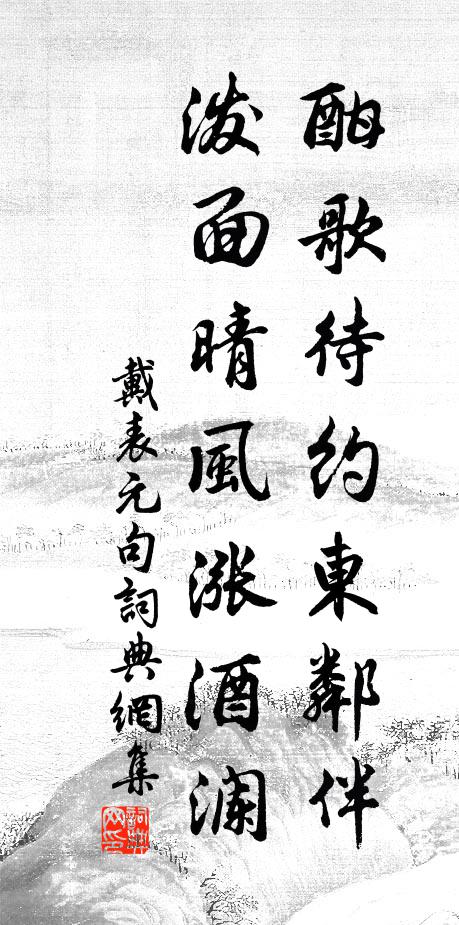 酣歌待約東鄰伴
潑面晴風漲酒瀾
戴表元句詞典網集